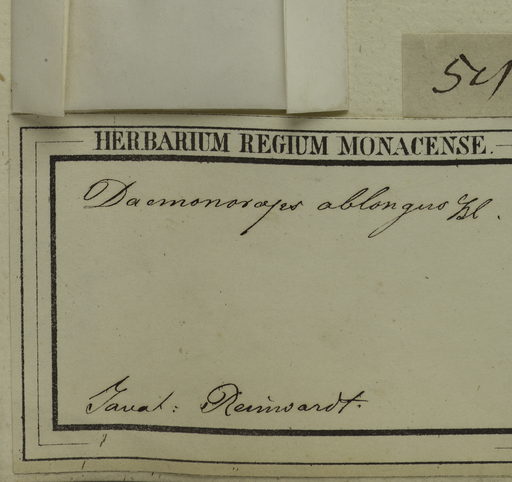 541
HERBARIUM REGIUM MONACENSE.
Daemonorops oblongus Bl.
Java: Reinwardt.